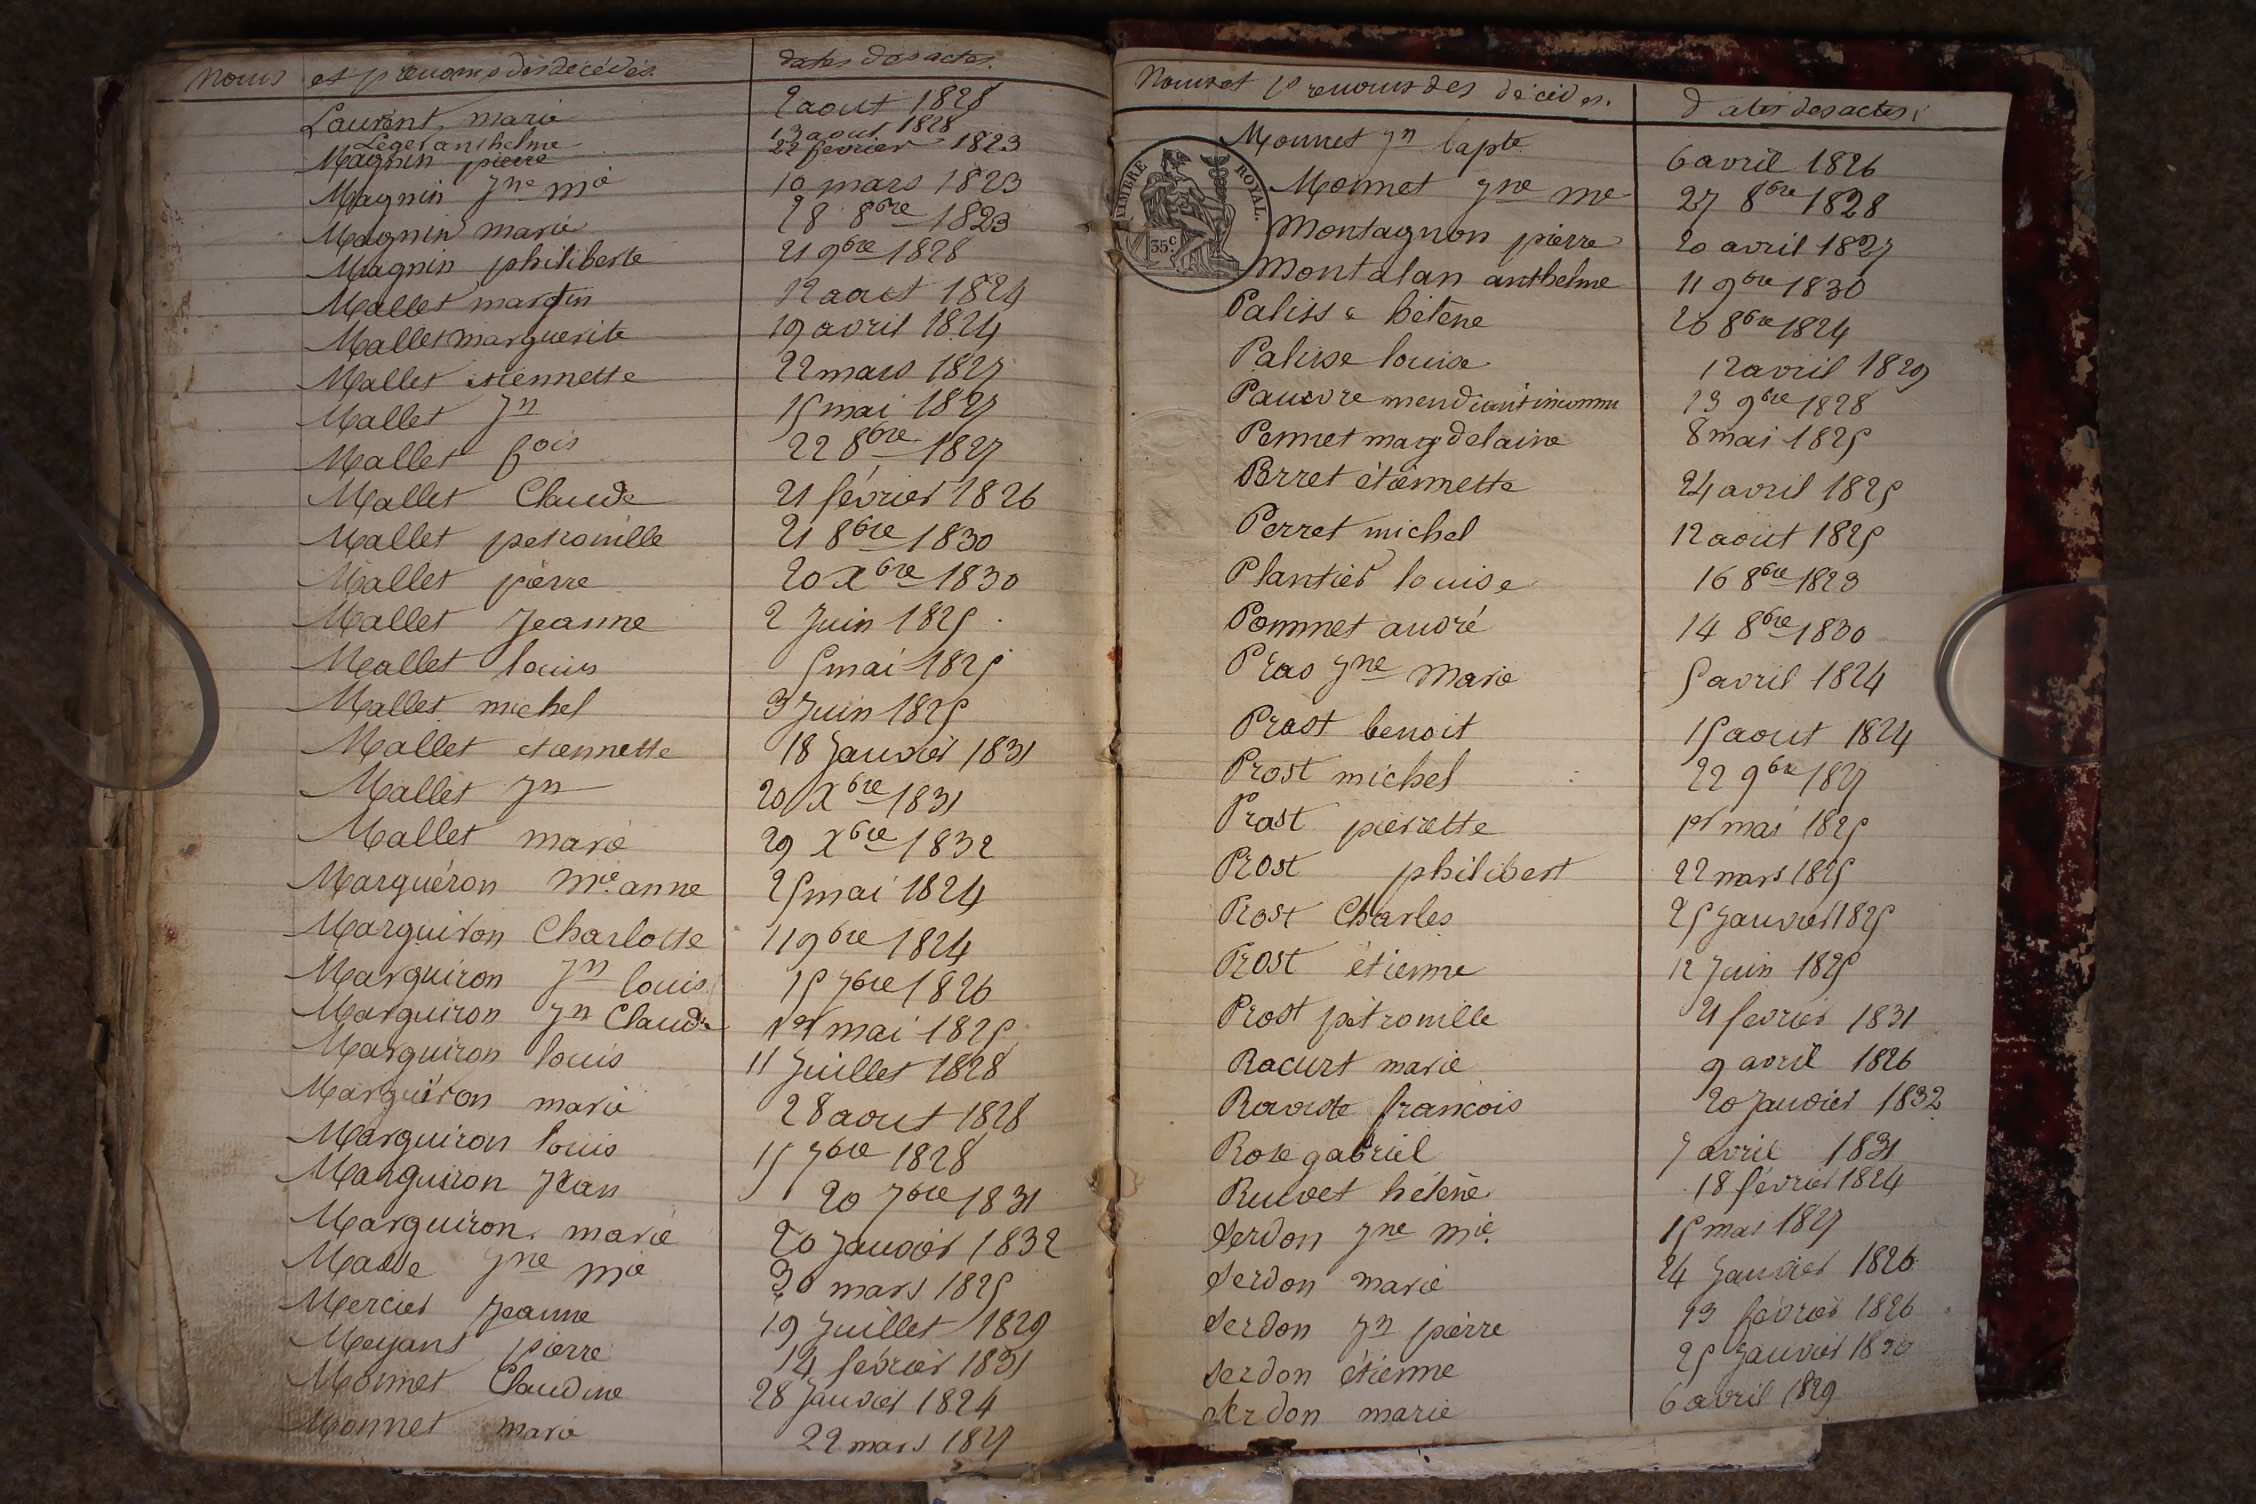 Noms et prenoms des décédés. dates des actes.
Laurent marie 2 aout 1828
Leger anthelme 13 aout 1828
Magnin pierre 22 fevrier 1823
Magnin Jne mie 10 mars 1823
Magnin marie 28 8bre 1823
Magnin philiberte 21 9bre 1828
Mallet martin 12 aout 1824
Mallet marguerite 19 avril 1824
Mallet etiennette 22 mars 1827
Mallet Jn 15 mai 1827
Mallet fois 22 8bre 1827
Mallet Claude 21 février 1826
Mallet petronille 21 8bre 1830
Mallet pierre 20 Xbre 1830
Mallet Jeanne 2 Juin 1825
Mallet louis 5 mai 1825
Mallet michel 3 Juin 1825
Mallet etiennette 18 Janvier 1831
Mallet Jn 20 Xbre 1831
Mallet marie 29 Xbre 1832
Marguéron Mie anne 25 mai 1824
Marguiron Charlotte 11 9bre 1824
Marguiron Jn louis 15 7bre 1826
Marguiron Jn Claude 1er mai 1825
Marguiron louis 11 Juillet 1828
Marguiron marie 28 aout 1828
Marguiron louis 15 7bre 1828
Marguiron Jean 20 7bre 1831
Marguiron marie 20 Janvier 1832
Jne mie 30 mars 1825
Mercier Jeanne 19 Juillet 1829
Meyant pierre 14 février 1831
Monnet Claudine 28 Janvier 1824
Monnet marie 22 mars 1827
Noms et prenoms des décédés. dates des actes.
TIMBRE ROYAL.
35c
Monnet Jn bapte 6 avril 1826
Monnet Jne me 27 8bre 1828
Montagnon pierre 20 avril 1827
Montalan anthelme 11 9bre 1830
Palisse hélène 26 8bre 1824
Palisse louise 12 avril 1829
Pauvre mendiant inconnu 13 9bre 1828
Pennet magdelaine 8 mai 1825
Perret étiennette 24 avril 1825
Perret michel 12 aout 1825
Plantier louise 16 8bre 1823
Pommet andré 14 8bre 1830
Pras Jne Marie 5 avril 1824
Prost benoit 15 aout 1824
Prost michel 22 9bre 1827
Prost pierrette 1er mai 1825
Prost philibert 22 mars 1825
Prost Charles 25 Janvier 1825
Prost étienne 12 Juin 1825
Prost pétronille 21 fevrier 1831
Racurt marie 9 avril 1826
françois 20 Janvier 1832
Rose gabriel 7 avril 1831
Ruivet hélène 18 février 1824
Serdon Jne mie 15 mai 1827
Serdon marie 24 Janvier 1826
Serdon Jn pierre 13 février 1826
Serdon étienne 25 Janvier 1830
Serdon marie 6 avril 1829